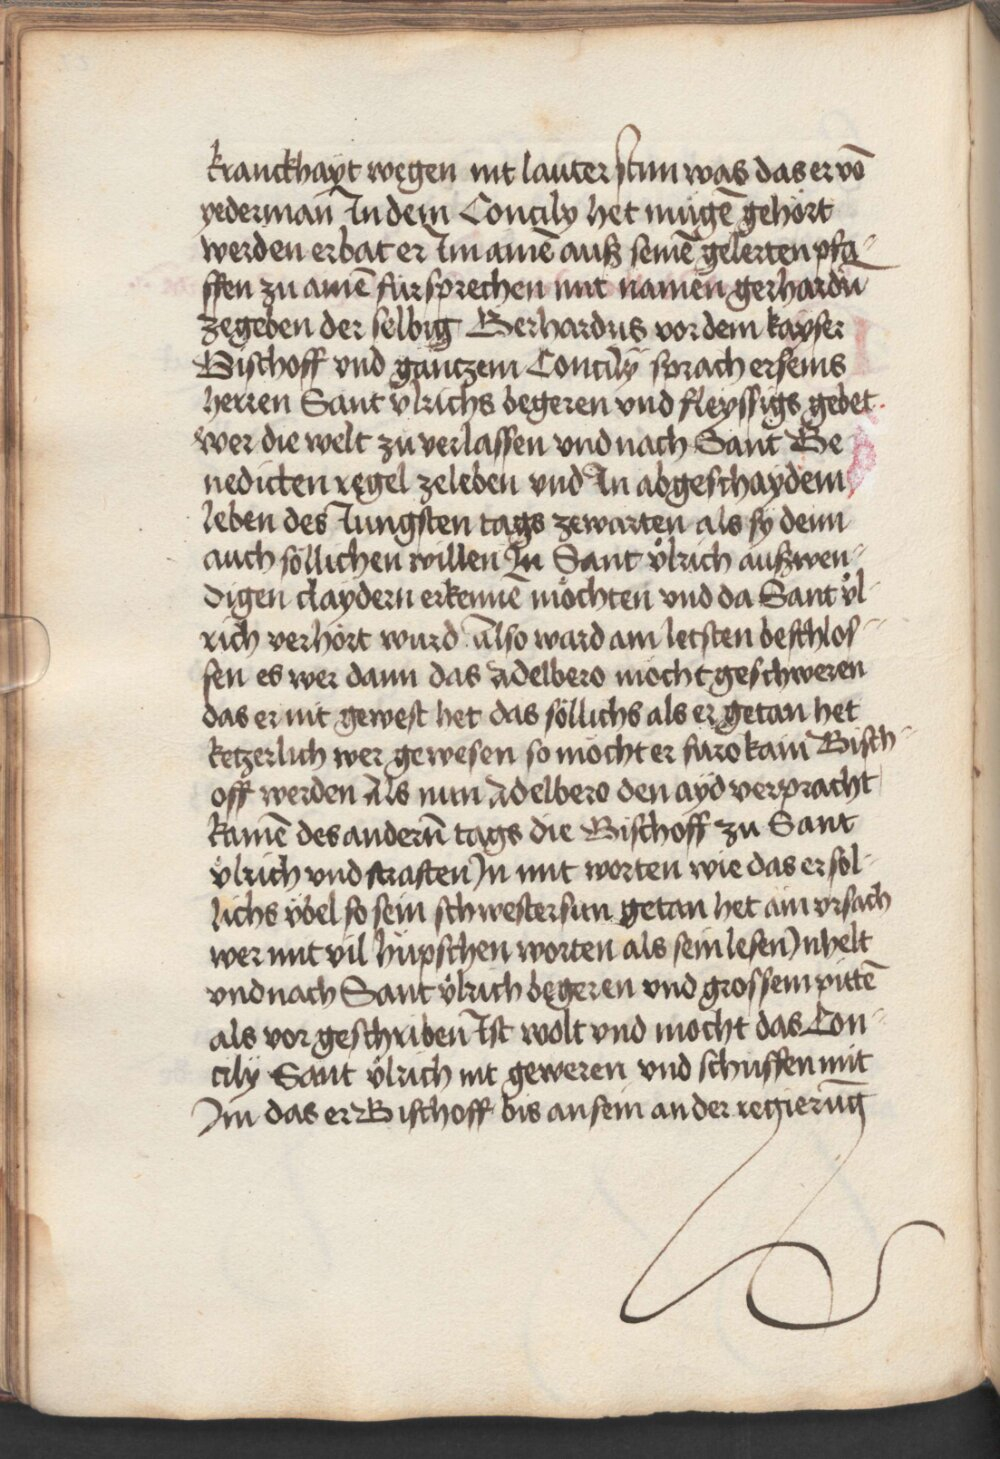 kranckhayt wegen nit lauter stim was das er vō
yederman In dem Concily het mügē gehört
werden erbat er Im ainē auß seinē gelerten pfa-
ffen zu ainē fürsprechen mit namen gerhardū
zegeben der selbig Gerhardus vor dem kayser
Bischoff vnd gantzem Concily sprach er seins
herren Sant vͦlrichs begeren vnd fleyssigs gebet
wer die welt zu verlassen vnd nach Sant Be
nedicten regel zeleben vnd In abgeschaydem
leben des Iungsten tags zewarten als sy denn
auch söllichen willen In Sant vͦlrich außwen-
digen claydern erkennē möchten vnd da Sant vͦl-
rich verhört wurd Also ward am letsten beschlos-
sen es wer dann das Adelbero möcht geschweren
das er nit gewest het das söllichs als er getan het
ketzerlich wer gewesen so möcht er füro kain Bisch-
off werden Als nun Adelbero den ayd verpracht
kamē des andern̄ tags die Bischoff zu Sant
vͦlrich vnd straften In mit worten wie das er sol-
lichs v̈bel so sein schwestersun getan het ain vrsach
wer mit vil hüpschen worten als sein lesen Inhelt
vnd nach Sant vͦlrich begeren vnd grossem pittē
als vor geschriben Ist wolt vnd mocht das Con-
cily Sant vͦlrich nit geweren vnd schuffen mit
Im das er Bischoff bis an sein an der regierūg